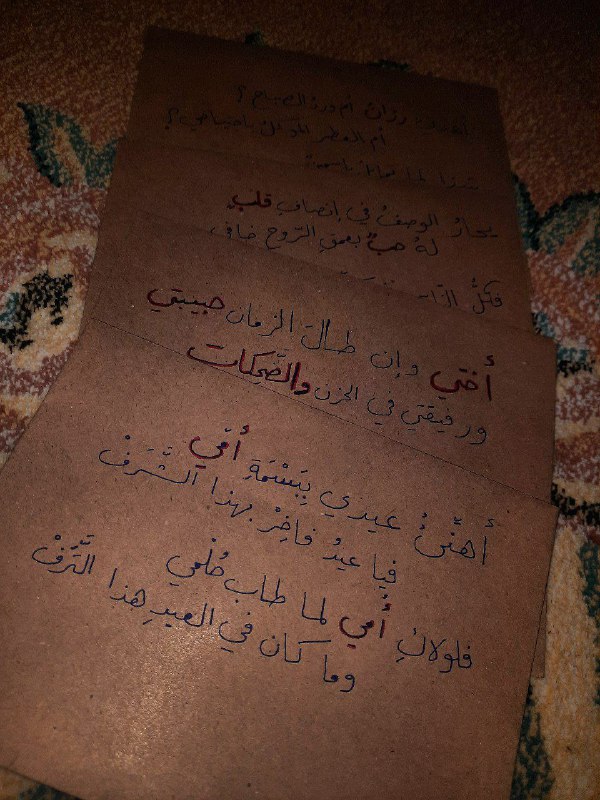 أم ورد الصباح؟
أم العطر
يحارُ الوصفُ في إنصافِ قلبٍ
لهُ حبٌ بعمقِ الرّوحِ صافي
فكلُّ
أختي وإن طالَ الزمان حبيبتي
ورفيقتي في الحزن والضّحكات
أهنّئُ عيدي بِبَسْمَةِ أمّي
فيا عيدُ فاخِرْ بهذا الشَّرَفْ
فلولاكِ أمي لما طاب حُلْمي
وما كان في العيدِ هذا التَّرَفْ